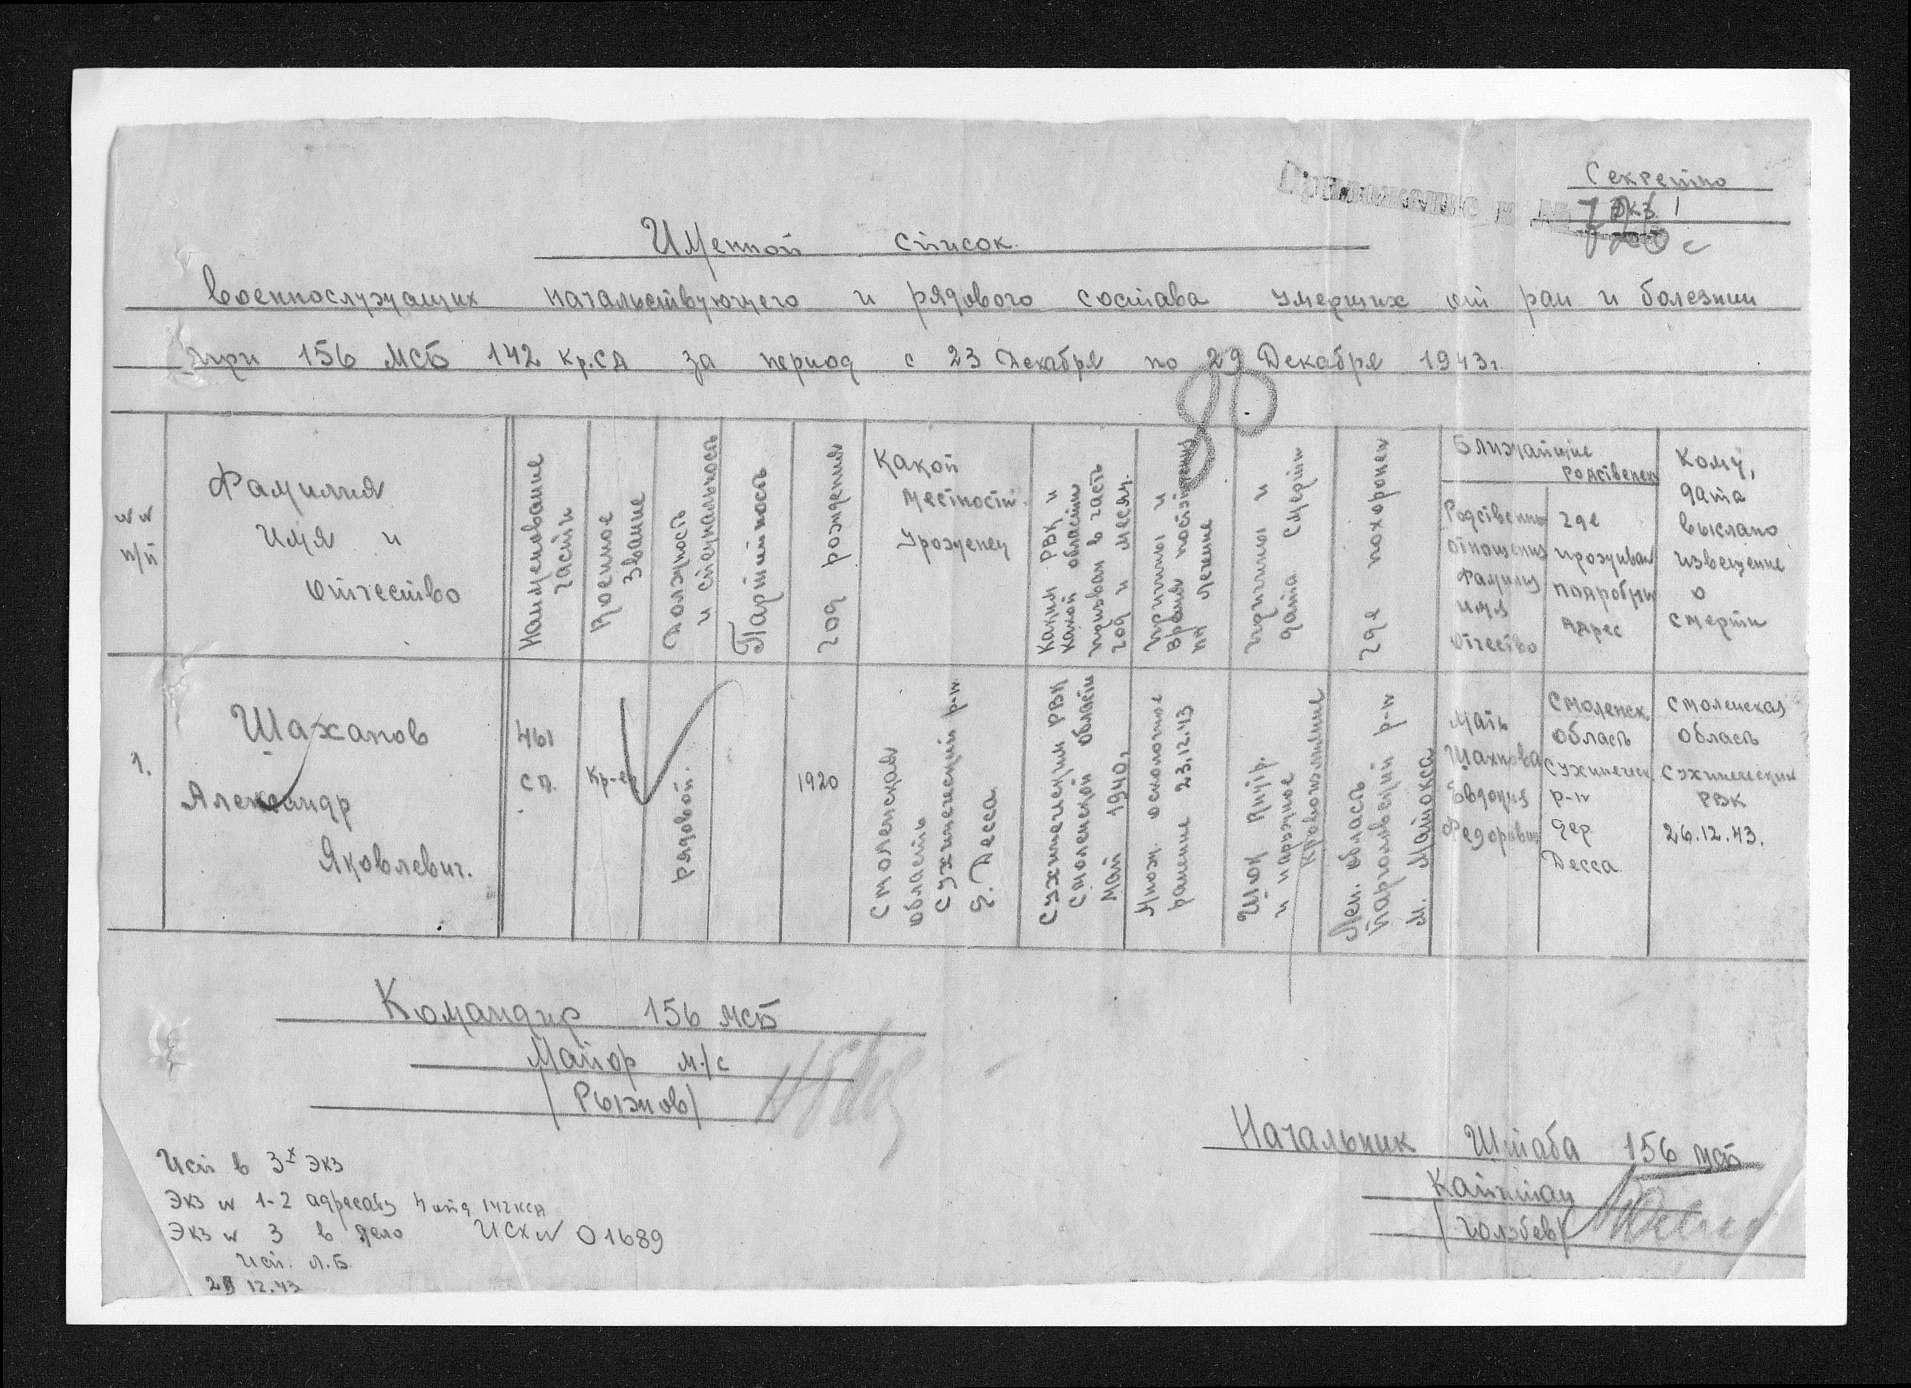 Секретно
Экз. 1
Именной список
военнослужащих начальствующего и рядового состава умерших от ран и болезнии
при 156 МСБ 142 Кр.СД за период с 23 Декабря по 29 Декабря 1943г.
80
№№
п/п
Фамилия
Имя и
Отчество
Наименование
части
Военное
звание
Должность
и специальность
Партийность
год рождения
Какой
местност.
Уроженец
Каким РВК и
какой области
призван в часть
год и месяц.
Причины и
время поступления
на лечение
Причины и
дата смерти
где похоронен
Ближайшие
родственен
Родственны
отношения
Фамилия
имя
отчество
где
проживан
подробны
адрес
Кому,
дата
выслано
извещение
о
смерти
1.
Шаханов
Александр
Яковлевич.
461
СП.
Кр-ец
рядовой
1920
Смоленская
область
Сухинический р-н
д. Десса
Сухиническим РВК
Смоленской области
Май 1940г
Множ осколочное
ранение 23.12.43
Шок
и наружное
кровотечение
Лен. область
Парголовский р-н
м. Матокса
Мать
Шахнова
Евдокия
Федоровна
Смоленск.
область
Сухиническ
р-н
дер
Десса
Смоленская
область
Сухинически
РВК
26.12.43.
Командир 156 МСБ
Майор м/с
/Рыжков/
Начальник Штаба 156 МСБ
Капитан
Исп в 3х экз
Экз № 1-2 адресату 142КСД
Экз № 3 в дело Исх № 01689
Исп. Л.Б.
12.43